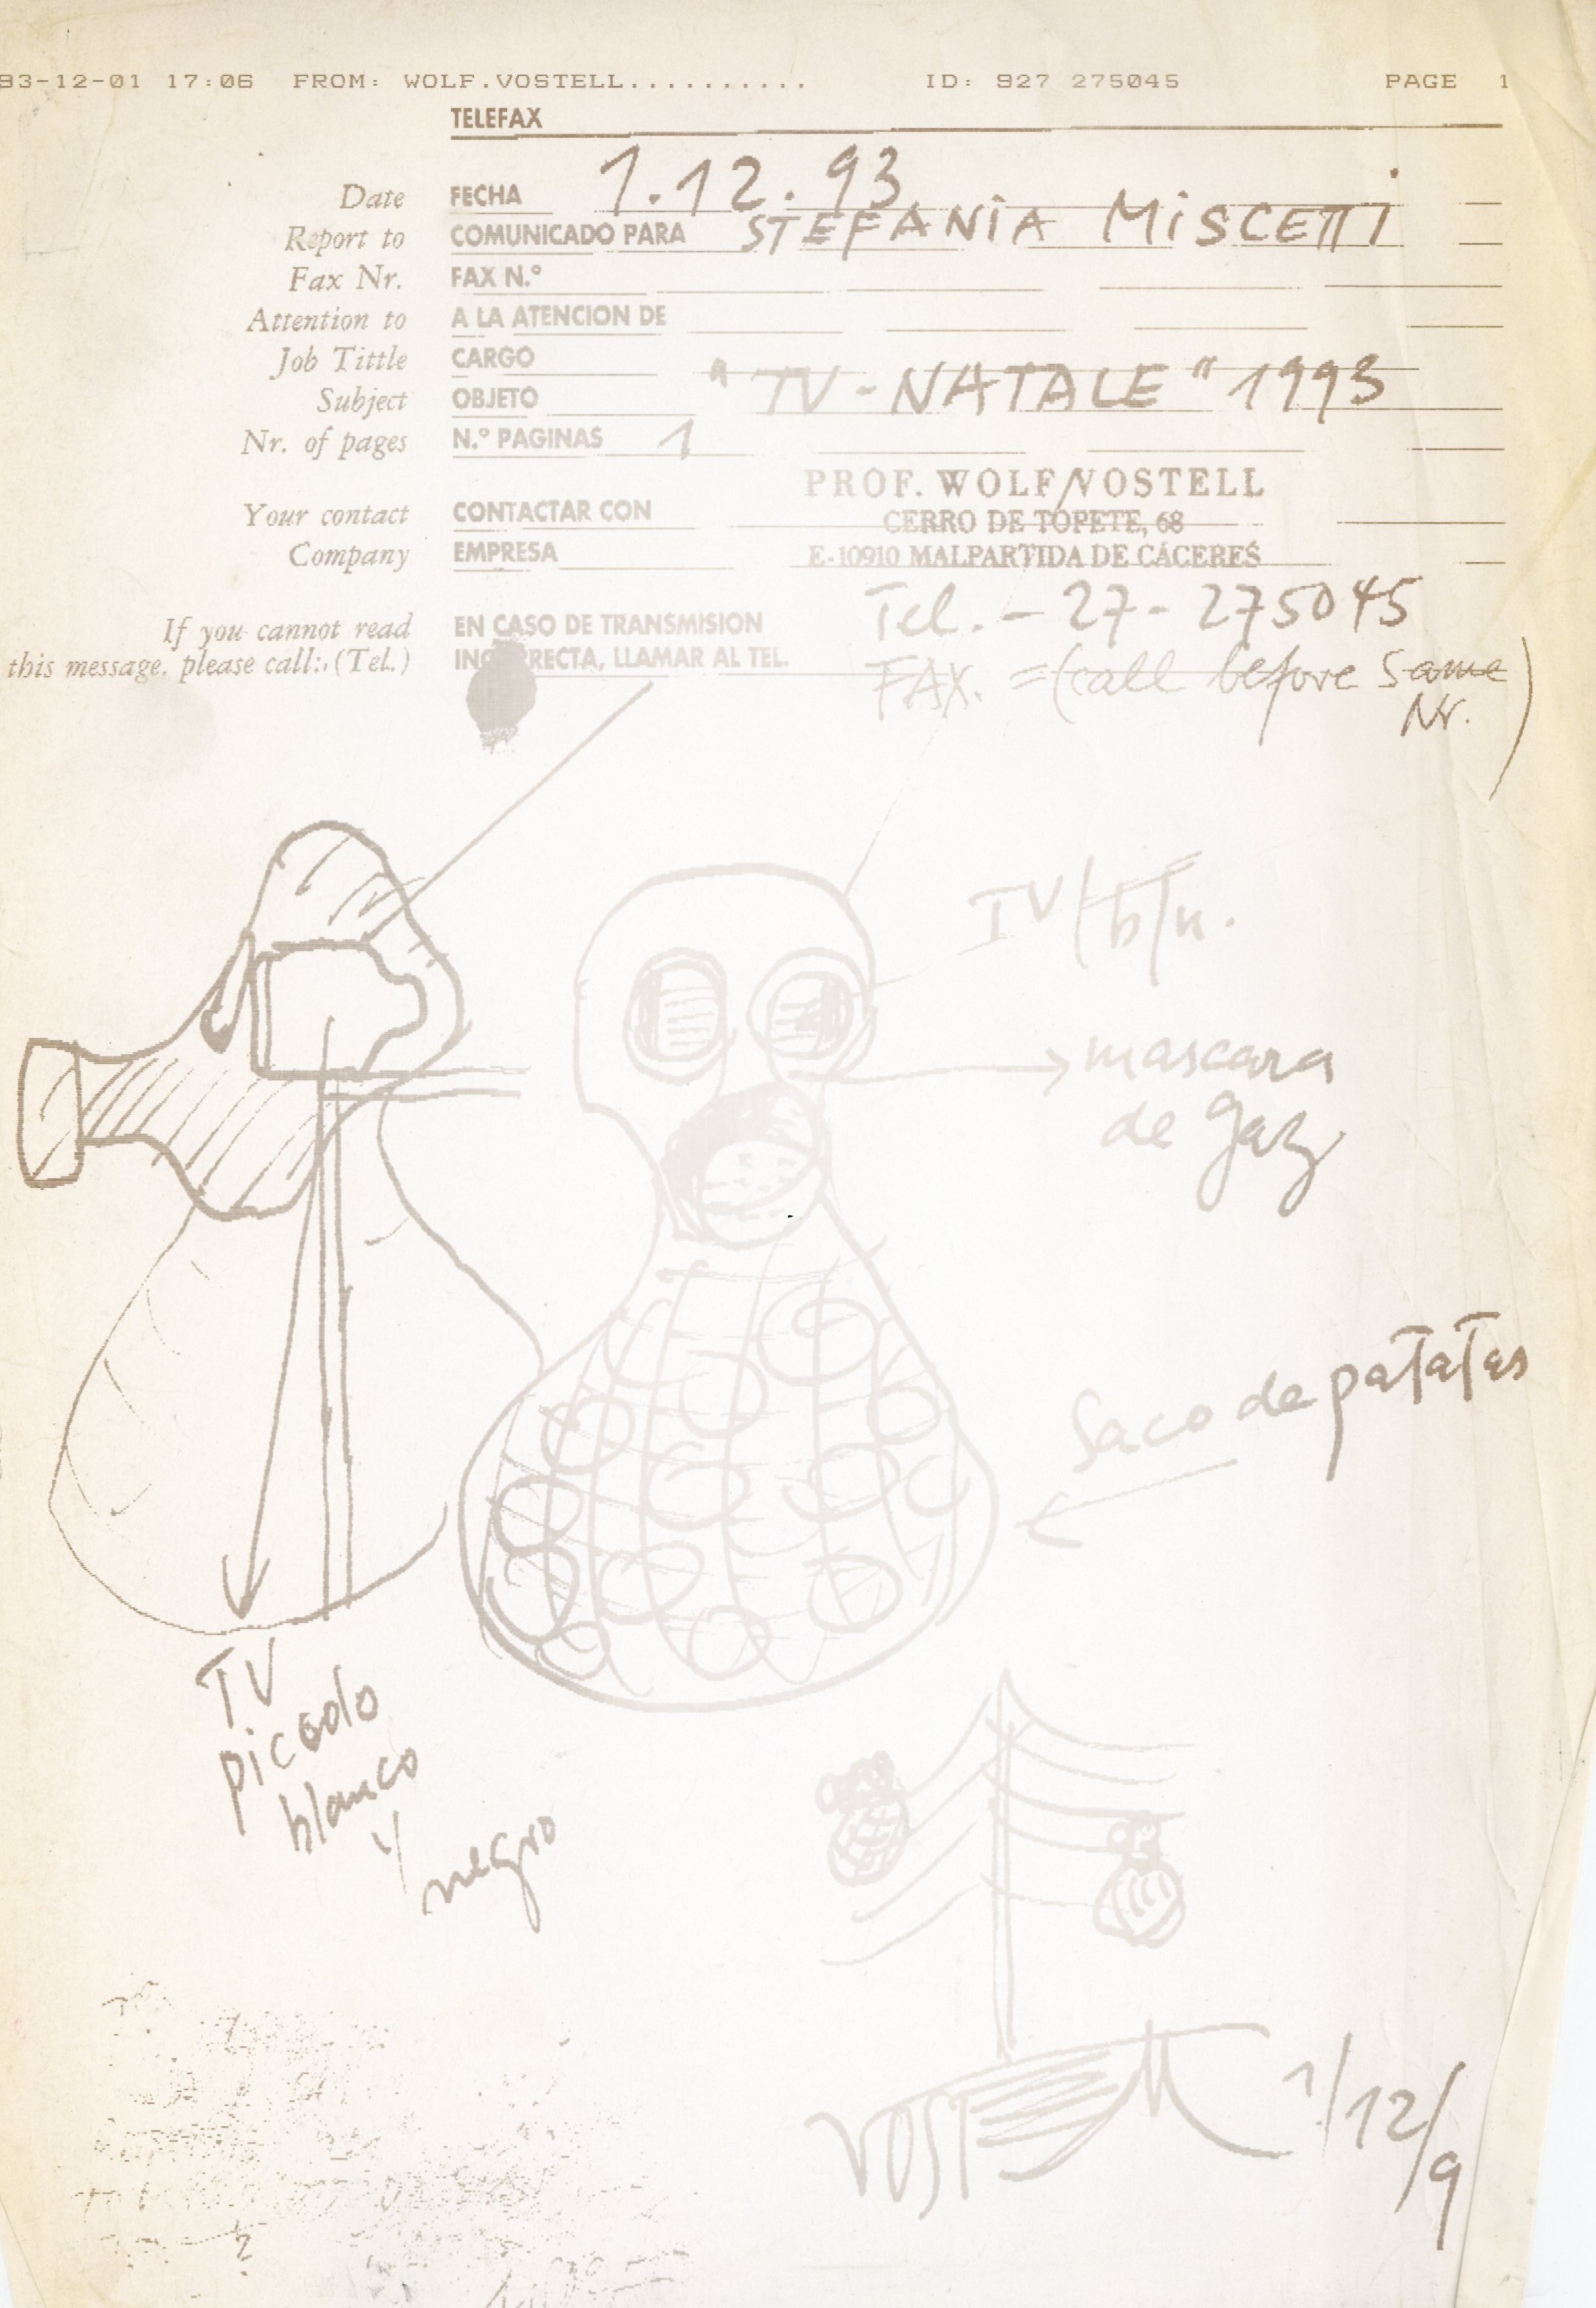 93-12-01 17:06 FROM: WOLF.VOSTELL.......... ID: 927 275045 PAGE 1
TELEFAX
Date FECHA 1.12.93
Report to COMUNICADO PARA STEFANIA MISCETTI
Fax Nr. FAX N.º
Attention to A LA ATENCION DE
Job Tittle CARGO
Subject OBJETO "TV-NATALE" 1993
Nr. of pages N.º PAGINAS 1
PROF. WOLF VOSTELL
Your contact CONTACTAR CON CERRO DE TOPETE, 68
Company EMPRESA E-10910 MALPARTIDA DE CÁCERES
Tel. - 27-275045
If you cannot read EN CASO DE TRANSMISION
this message, please call:.(Tel.) INCORRECTA, LLAMAR AL TEL.
FAX. = (call before same
Nr. )
TV/b/n.
mascara
de gaz
Saco de patatas
TV
picado
blanco
y
negro
VOSTELL 1/12/9